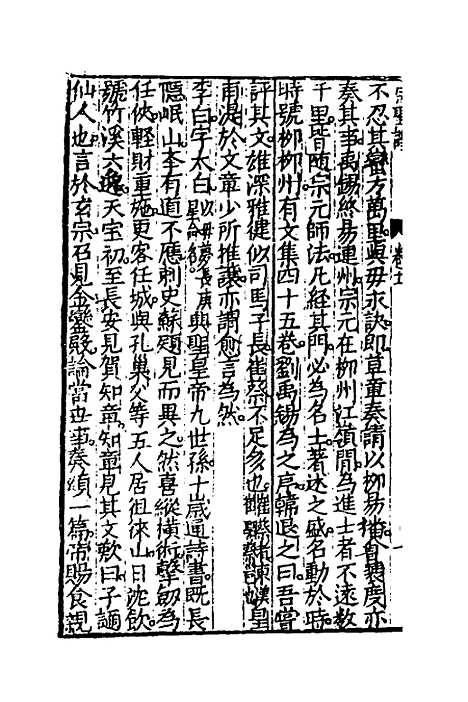 不忍其蠻方萬里與母永訣即草章奏請以柳易播會裴度亦
奏其事禹錫終易連州宗元在柳州江嶺間為進士者不遠數
千里皆隨宗元師法凡經其門必為名士著述之盛名動於時
時號柳柳州有文集四十五卷劉禹錫為之序韓退之曰吾嘗
評其文雄深雅健似司馬子長崔蔡不足多也皇
甫湜於文章少所推讓亦謂愈言為然
李白字太白以母夢長庚星而命之與聖皇帝九世孫十歲通詩書既長
隱岷山李有道不應刺史蘇頲見而異之然喜縱橫術擊劒為
任俠輕財重施更客任城與孔巢父等五人居徂徠山日沈飲
號竹溪六逸天寶初至長安見賀知章知章見其文歎曰子謫
仙人也言於玄宗召見金鑾殿論當世事奏頌一篇帝賜食親